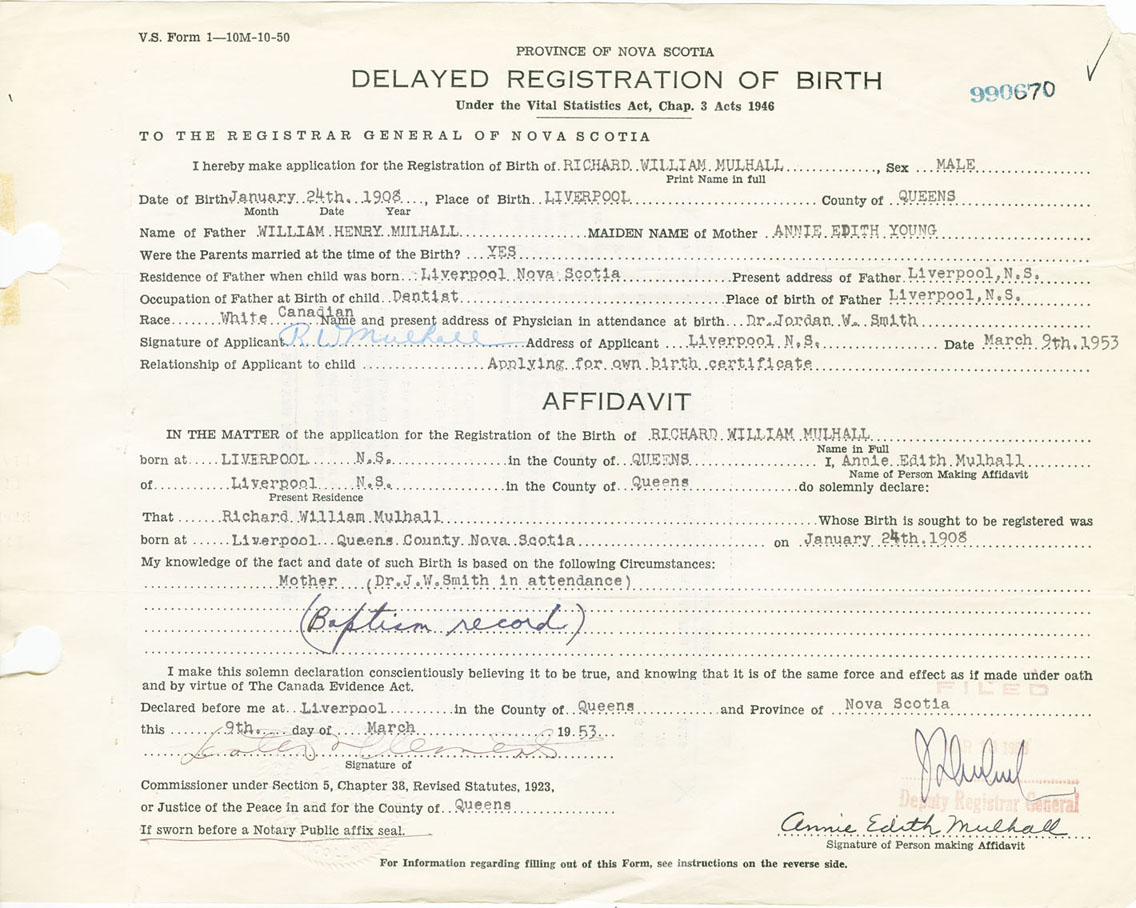 V.S. Form 1—10M-10-50
PROVINCE OF NOVA SCOTIA
DELAYED REGISTRATION OF BIRTH
990670
Under the Vital Statistics Act, Chap. 3 Acts 1946
TO THE REGISTRAR GENERAL OF NOVA SCOTIA
I hereby make application for the Registration of Birth of RICHARD WILLIAM MULHALL, Sex MALE
Print Name in full
Date of Birth January 24th. 1908, Place of Birth LIVERPOOL County of QUEENS
Month Date Year
Name of Father WILLIAM HENRY MULHALL MAIDEN NAME of Mother ANNIE EDITH YOUNG
Were the Parents married at the time of the Birth? YES
Residence of Father when child was born Liverpool Nova Scotia Present address of Father Liverpool, N.S.
Occupation of Father at Birth of child Dentist Place of birth of Father Liverpool, N.S.
Race White Canadian Name and present address of Physician in attendance at birth Dr. Jordan W. Smith
Signature of Applicant R W Mulhall Address of Applicant Liverpool N.S. Date March 9th. 1953
Relationship of Applicant to child Applying for own birth certificate
AFFIDAVIT
IN THE MATTER of the application for the Registration of the Birth of RICHARD WILLIAM MULHALL
Name in Full
born at LIVERPOOL N.S. in the County of QUEENS I, Annie Edith Mulhall
Name of Person Making Affidavit
of Liverpool N.S. in the County of Queens do solemnly declare:
Present Residence
That Richard William Mulhall Whose Birth is sought to be registered was
born at Liverpool Queens County Nova Scotia on January 24th. 1908
My knowledge of the fact and date of such Birth is based on the following Circumstances:
Mother (Dr. J.W. Smith in attendance)
(Baptism record)
I make this solemn declaration conscientiously believing it to be true, and knowing that it is of the same force and effect as if made under oath
and by virtue of The Canada Evidence Act.
FILED
Declared before me at Liverpool in the County of Queens and Province of Nova Scotia
this 9th. day of March 1953.
Signature of
Commissioner under Section 5, Chapter 38, Revised Statutes, 1923,
Deputy Registrar General
or Justice of the Peace in and for the County of Queens
Annie Edith Mulhall
If sworn before a Notary Public affix seal.
Signature of Person making Affidavit
For Information regarding filling out of this Form, see instructions on the reverse side.